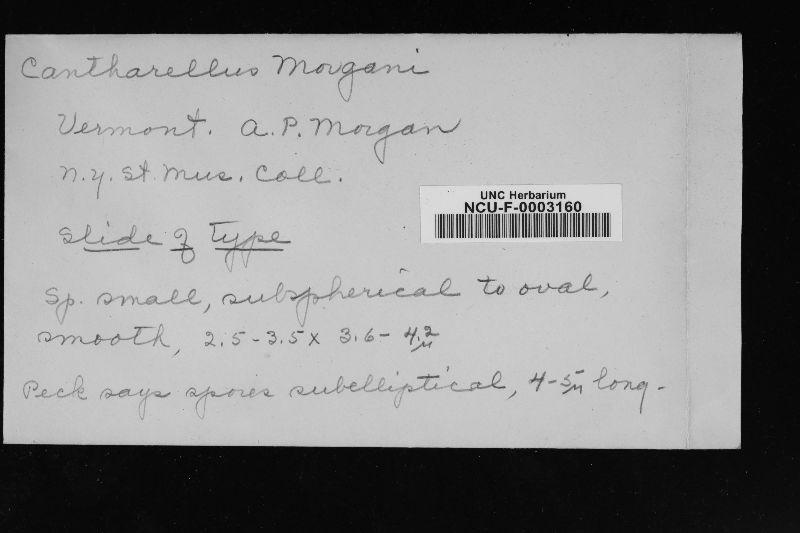 Cantharellus Morgani
Vermont. A.P. Morgan
N.Y. St. Mus. Coll.
UNC Herbarium
NCU-F-0003160
Slide of type
Sp. small, subspherical to oval,
smooth, 2.5-3.5 x 3.6-4.2 µ
Peck says spores subelliptical, 4-5 µ long-